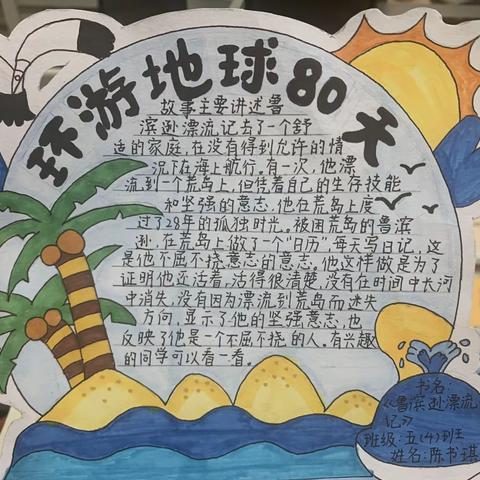 环游地球80天
故事主要讲述鲁
滨逊漂流记去了一个舒
适的家庭,在没有得到允许的情
况下在海上航行。有一次,他漂
流到一个荒岛上,但凭着自己的生存技能
和坚强的意志,他在荒岛上度
过了28年的孤独时光。被困荒岛的鲁滨
逊,在荒岛上做了一个"日历",每天写日记,这
是他不屈不挠意志的意志。他这样做是为了
证明他还活着,活得很清楚,没有在时间中长河
中消失,没有因为漂流到荒岛而迷失
方向,显示了他的坚强意志,也
反映了他是一个不屈不挠的人,有兴趣
的同学可以看一看。
书名:
《鲁滨逊漂流
记》
班级:五(4)班王
姓名:陈书琪